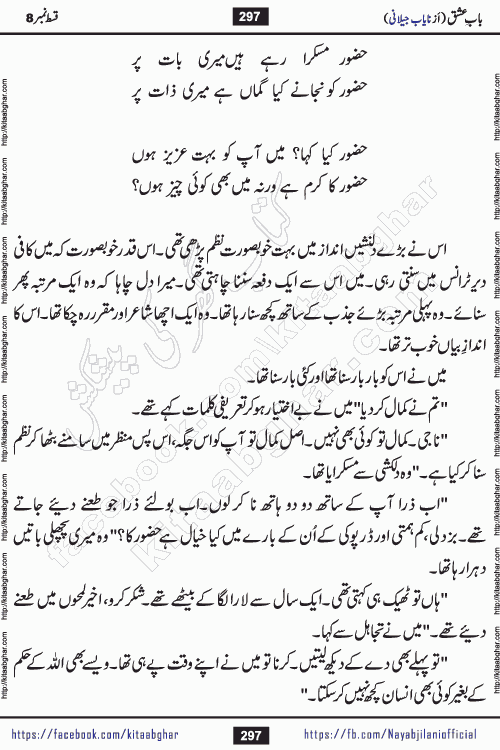 باب عشق (از نایاب جیلانی) 297 قسط نمبر 8
حضور مسکرا رہے ہیں میری بات پر
حضور کو نجانے کیا گماں ہے میری ذات پر
حضور کیا کہا؟ میں آپ کو بہت عزیز ہوں
حضور کا کرم ہے ورنہ میں بھی کوئی چیز ہوں؟
اس نے بڑے دلنشیں انداز میں بہت خوبصورت نظم پڑھی تھی۔ اس قدر خوبصورت کہ میں کافی
دیر ٹرانس میں سنتی رہی۔ میں اس سے ایک دفعہ سننا چاہتی تھی۔ میرا دل چاہا کہ وہ ایک مرتبہ پھر
سنائے۔ وہ پہلی مرتبہ بڑے جذب کے ساتھ کچھ سنا رہا تھا۔ وہ ایک اچھا شاعر اور مقرر رہ چکا تھا۔ اس کا
انداز بیاں خوب تر تھا۔
میں نے اس کو بار بار سنا تھا اور کئی بار سنا تھا۔
"تم نے کمال کر دیا" میں نے بے اختیار ہو کر تعریفی کلمات کہے تھے۔
"ناجی۔ کمال تو کوئی بھی نہیں۔ اصل کمال تو آپ کو اس جگہ، اس پس منظر میں سامنے بٹھا کر نظم
سنا کر کیا ہے۔" وہ دلکشی سے مسکرایا تھا۔
"اب ذرا آپ کے ساتھ دو دو ہاتھ نا کر لوں۔ اب بولئے ذرا جو طعنے دیئے جاتے
تھے۔ بزدلی، کم ہمتی اور ڈرپوکی کے اُن کے بارے میں کیا خیال ہے حضور کا؟" وہ میری پچھلی باتیں
دہرا رہا تھا۔
"ہاں تو ٹھیک ہی کہتی تھی۔ ایک سال سے لارا لگا کے بیٹھے تھے۔ شکر کرو، اخیر لمحوں میں طعنے
دیئے تھے۔" میں نے تجاہل سے کہا۔
"تو پہلے بھی دے کے دیکھ لیتیں۔ کرنا تو میں نے اپنے وقت پے ہی تھا۔ ویسے بھی اللہ کے حکم
کے بغیر کوئی بھی انسان کچھ نہیں کر سکتا۔"
https://facebook.com/kitaabghar 297 https://fb.com/Nayabjilaniofficial
http://kitaabghar.com
کتاب گھر کی پیشکش
facebook.com/kitaabghar
kitaabghar.com